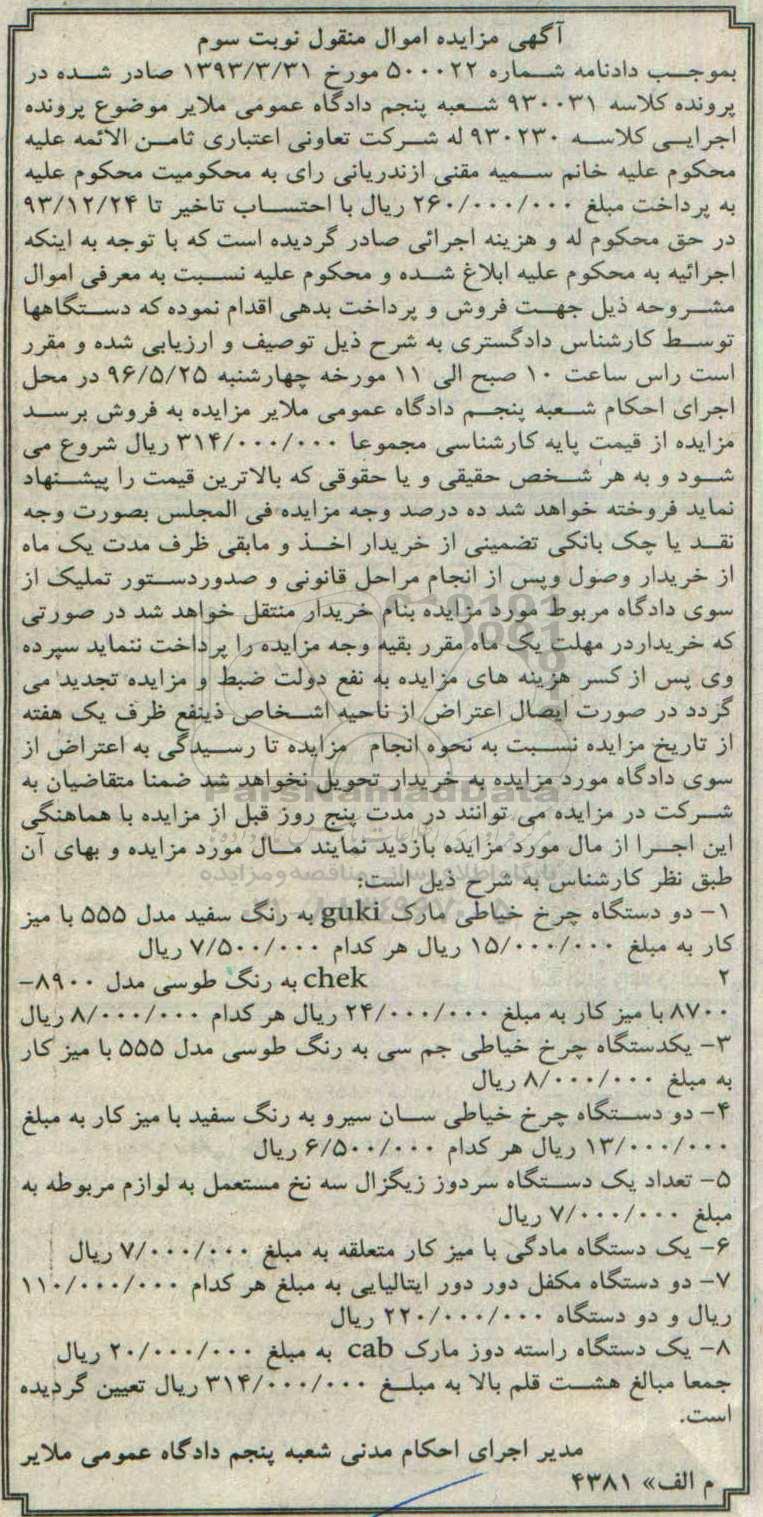 آگهی مزایده اموال منقول نوبت سوم
بموجب دادنامه شماره ۵۰۰۰۲۲ مورخ ۱۳۹۳/۳/۳۱ صادر شده در
پرونده کلاسه ۹۳۰۰۳۱ شعبه پنجم دادگاه عمومی ملایر موضوع پرونده
اجرایی کلاسه ۹۳۰۲۳۰ له شرکت تعاونی اعتباری ثامن الائمه علیه
محکوم علیه خانم سمیه مقنی ازندریانی رای به محکومیت محکوم علیه
به پرداخت مبلغ ۲۶۰/۰۰۰/۰۰۰ ریال با احتساب تاخیر تا ۹۳/۱۲/۲۴
در حق محکوم له و هزینه اجرائی صادر گردیده است که با توجه به اینکه
اجرائیه به محکوم علیه ابلاغ شده و محکوم علیه نسبت به معرفی اموال
مشروحه ذیل جهت فروش و پرداخت بدهی اقدام نموده که دستگاهها
توسط کارشناس دادگستری به شرح ذیل توصیف و ارزیابی شده و مقرر
است راس ساعت ۱۰ صبح الی ۱۱ مورخه چهارشنبه ۹۶/۵/۲۵ در محل
اجرای احکام شعبه پنجم دادگاه عمومی ملایر مزایده به فروش برسد
مزایده از قیمت پایه کارشناسی مجموعا ۳۱۴/۰۰۰/۰۰۰ ریال شروع می
شود و به هر شخص حقیقی و یا حقوقی که بالاترین قیمت را پیشنهاد
نماید فروخته خواهد شد ده درصد وجه مزایده فی المجلس بصورت وجه
نقد یا چک بانکی تضمینی از خریدار اخذ و مابقی ظرف مدت یک ماه
از خریدار وصول وپس از انجام مراحل قانونی و صدوردستور تملیک از
سوی دادگاه مربوط مورد مزایده بنام خریدار منتقل خواهد شد در صورتی
که خریداردر مهلت یک ماه مقرر بقیه وجه مزایده را پرداخت ننماید سپرده
وی پس از کسر هزینه های مزایده به نفع دولت ضبط و مزایده تجدید می
گردد در صورت ایصال اعتراض از ناحیه اشخاص ذینفع ظرف یک هفته
از تاریخ مزایده نسبت به نحوه انجام مزایده تا رسیدگی به اعتراض از
سوی دادگاه مورد مزایده به خریدار تحویل نخواهد شد ضمنا متقاضیان به
شرکت در مزایده می توانند در مدت پنج روز قبل از مزایده با هماهنگی
این اجرا از مال مورد مزایده بازدید نمایند مال مورد مزایده و بهای آن
طبق نظر کارشناس به شرح ذیل است:
۱- دو دستگاه چرخ خیاطی مارک guki به رنگ سفید مدل ۵۵۵ با میز
کار به مبلغ ۱۵/۰۰۰/۰۰۰ ریال هر کدام ۷/۵۰۰/۰۰۰ ریال
۲ chek به رنگ طوسی مدل ۸۹۰۰-
۸۷۰۰ با میز کار به مبلغ ۲۴/۰۰۰/۰۰۰ ریال هر کدام ۸/۰۰۰/۰۰۰ ریال
۳- یکدستگاه چرخ خیاطی جم سی به رنگ طوسی مدل ۵۵۵ با میز کار
به مبلغ ۸/۰۰۰/۰۰۰ ریال
۴- دو دستگاه چرخ خیاطی سان سیرو به رنگ سفید با میز کار به مبلغ
۱۳/۰۰۰/۰۰۰ ریال هر کدام ۶/۵۰۰/۰۰۰ ریال
۵- تعداد یک دستگاه سردوز زیگزال سه نخ مستعمل به لوازم مربوطه به
مبلغ ۷/۰۰۰/۰۰۰ ریال
۶- یک دستگاه مادگی با میز کار متعلقه به مبلغ ۷/۰۰۰/۰۰۰ ریال
۷- دو دستگاه مکفل دور دور ایتالیایی به مبلغ هر کدام ۱۱۰/۰۰۰/۰۰۰
ریال و دو دستگاه ۲۲۰/۰۰۰/۰۰۰ ریال
۸- یک دستگاه راسته دوز مارک cab به مبلغ ۲۰/۰۰۰/۰۰۰ ریال
جمعا مبالغ هشت قلم بالا به مبلغ ۳۱۴/۰۰۰/۰۰۰ ریال تعیین گردیده
است.
مدیر اجرای احکام مدنی شعبه پنجم دادگاه عمومی ملایر
م الف» ۴۳۸۱
ParsNamadData